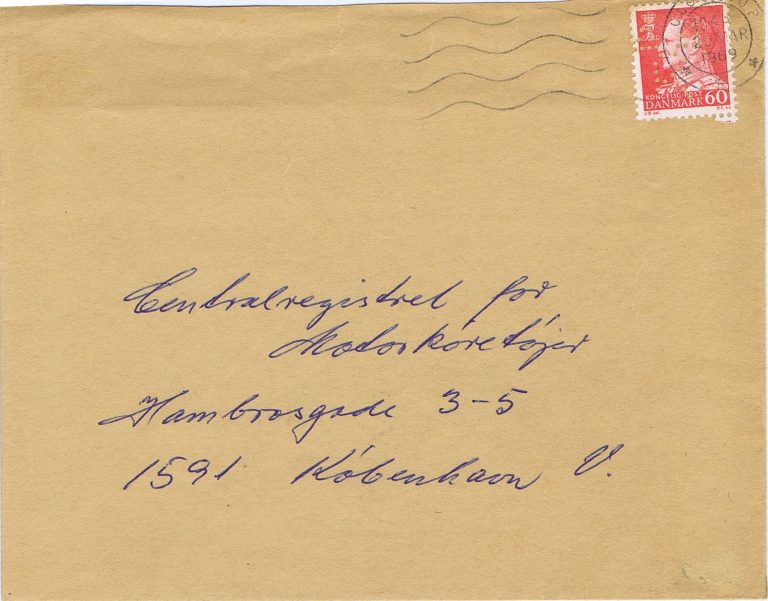 1969
KONGELIG POST
DANMARK 60
Centralregistret for
Motorkøretøjer
Hambrosgade 3-5
1591 København V.